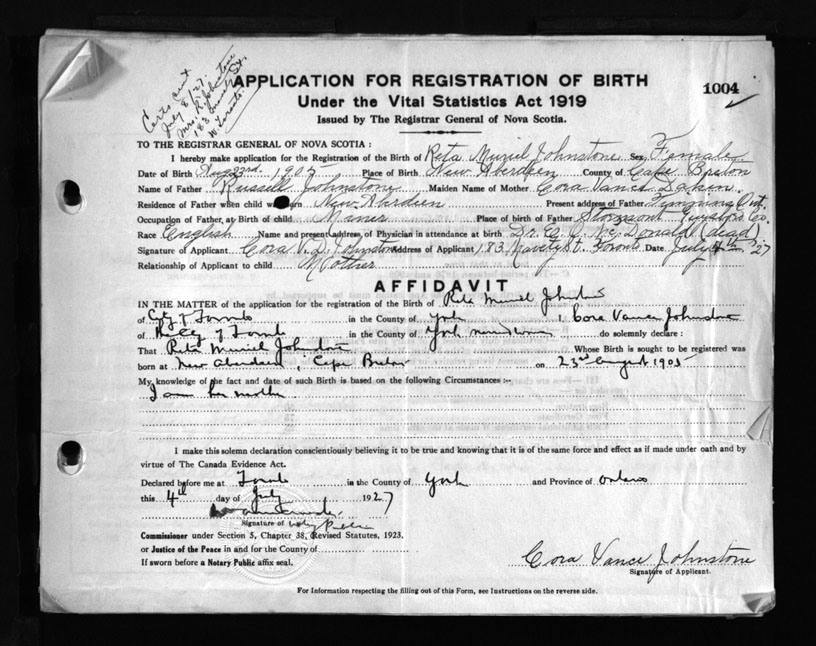 Cert sent
July 8/27.
Mrs. R. Johnstone
183
W. Toronto.
APPLICATION FOR REGISTRATION OF BIRTH
1004
Under the Vital Statistics Act 1919
Issued by The Registrar General of Nova Scotia.
TO THE REGISTRAR GENERAL OF NOVA SCOTIA :
I hereby make application for the Registration of the Birth of Reta Muriel Johnstone Sex Female
Date of Birth Aug 23rd. 1905 Place of Birth New Aberdeen County of Cape Breton
Name of Father Russell Johnstone Maiden Name of Mother Cora Vance
Residence of Father when child was born New Aberdeen Present address of Father Timmins Ont.
Occupation of Father, at Birth of child Miner Place of birth of Father Stormont Guysboro Co.
Race English Name and present address, of Physician in attendance at birth Dr. Mc. Donald (dead)
Signature of Applicant Cora V. D. Johnstone Address of Applicant 183 Mavety St. Toronto Date July 4th '27
Relationship of Applicant to child Mother
AFFIDAVIT
IN THE MATTER of the application for the registration of the Birth of Reta Muriel Johnstone
of City of Toronto in the County of York I, Cora Vance Johnstone
of City of Toronto in the County of York do solemnly declare :
That Reta Muriel Johnstone Whose Birth is sought to be registered was
born at New Aberdeen, Cape Breton on 23rd August 1905
My knowledge of the fact and date of such Birth is based on the following Circumstances :-
I am her mother
I make this solemn declaration conscientiously believing it to be true and knowing that it is of the same force and effect as if made under oath and by
virtue of The Canada Evidence Act.
Declared before me at Toronto in the County of York and Province of Ontario
this 4th day of July 1927
Signature of
Commissioner under Section 5, Chapter 38, Revised Statutes, 1923.
or Justice of the Peace in and for the County of
If sworn before a Notary Public affix seal.
Cora Vance Johnstone
Signature of Applicant.
For Information respecting the filling out of this Form, see Instructions on the reverse side.